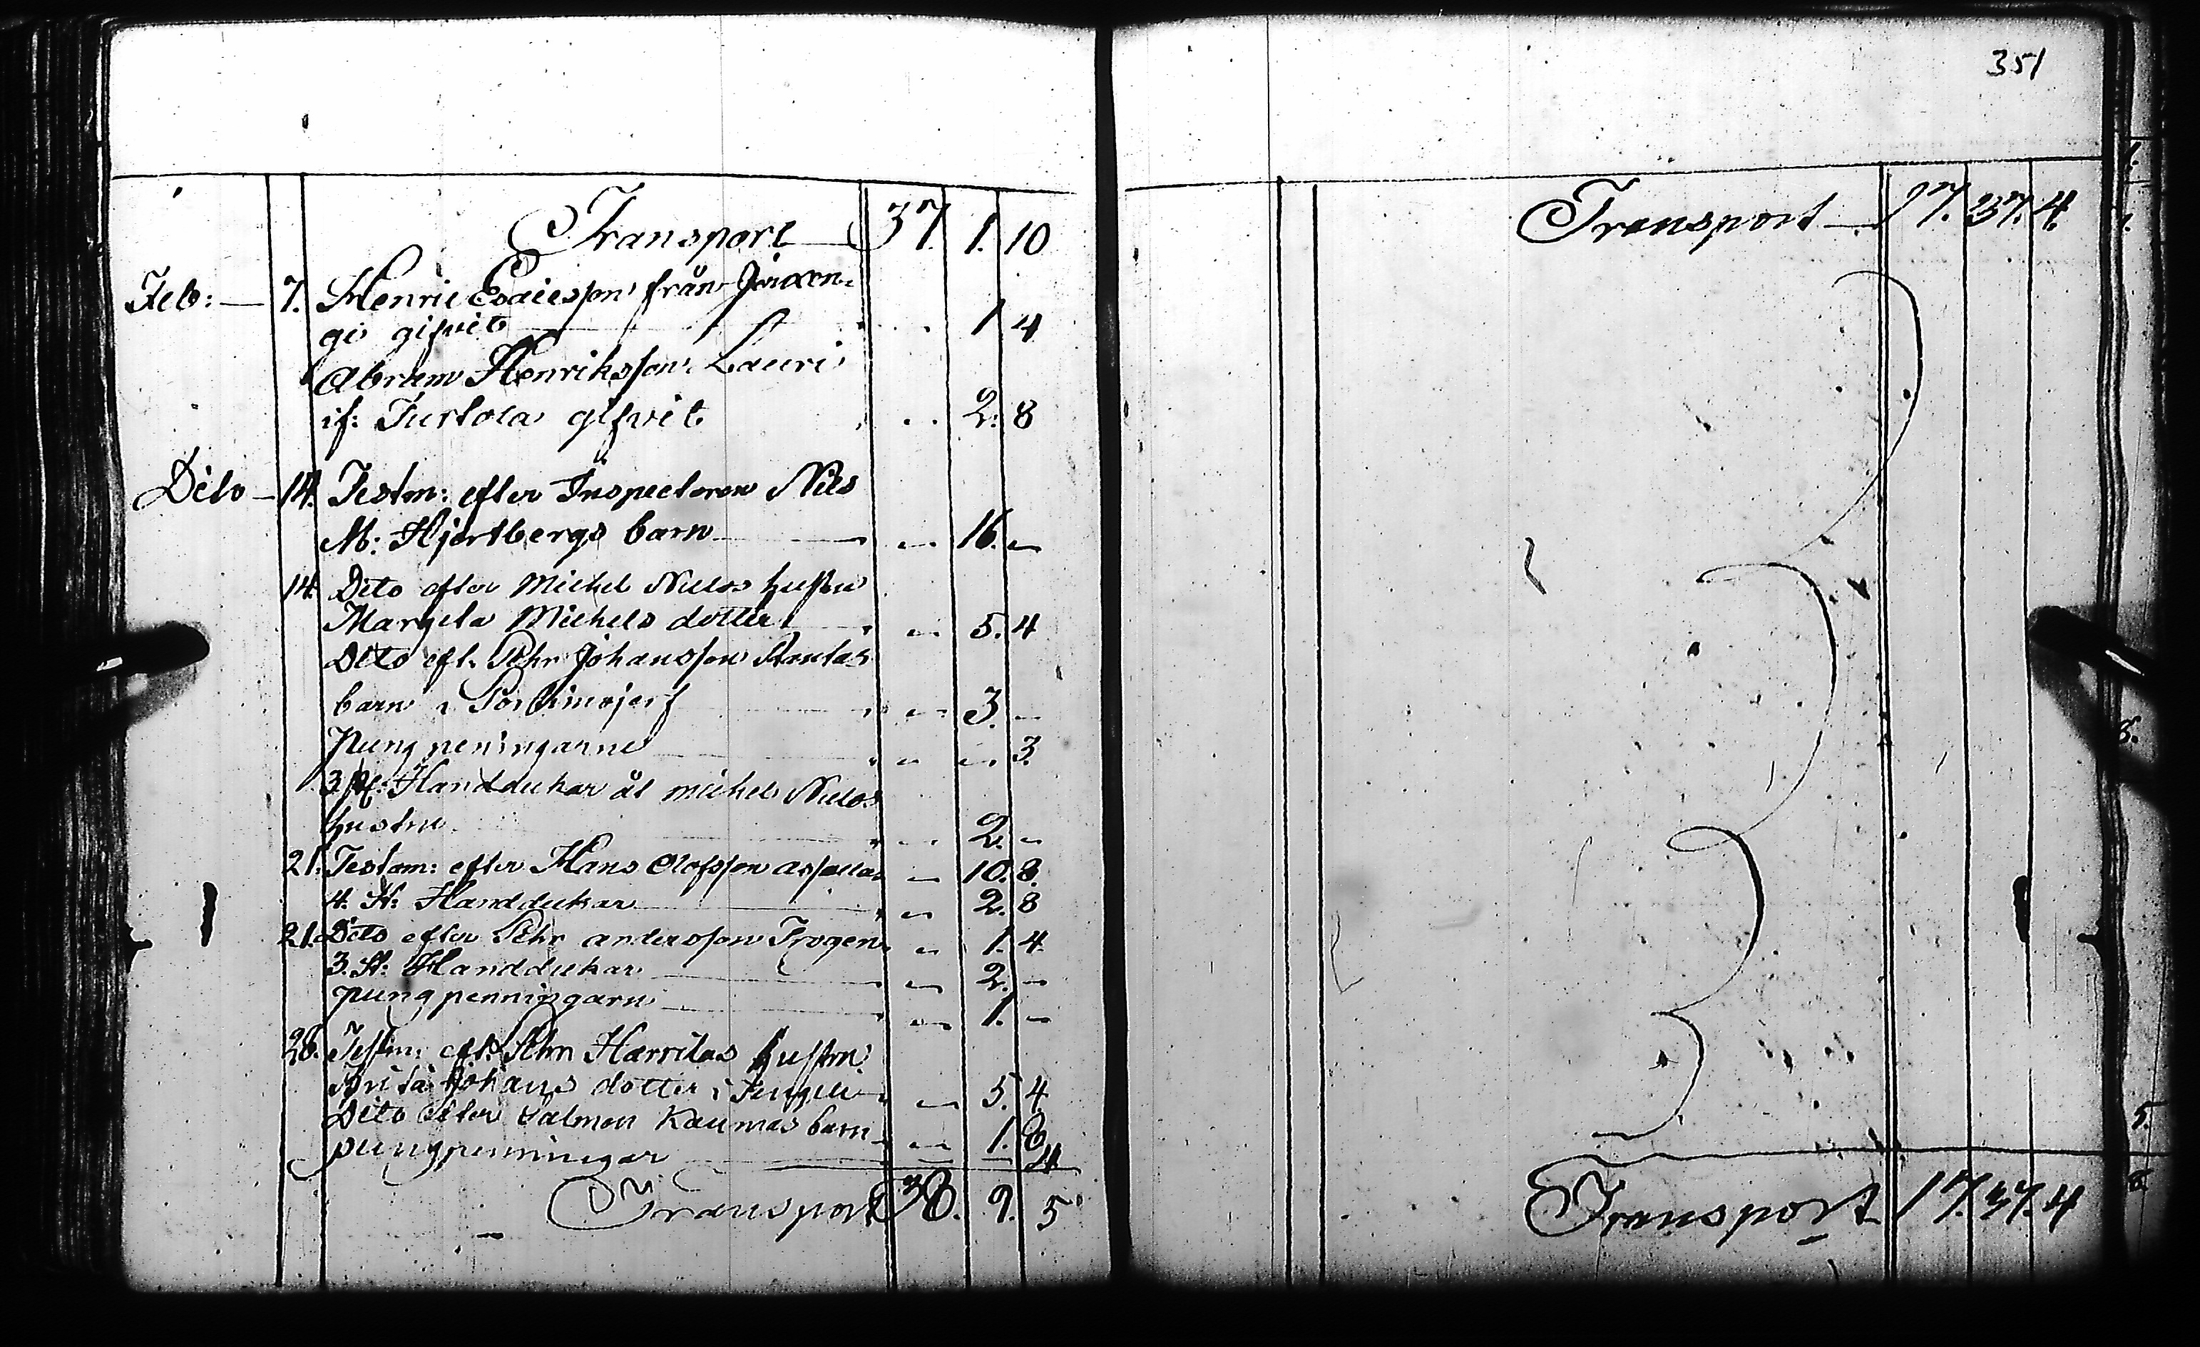 351
Transport 37. 1. 10
Feb: 7. Henric Esaiesson från Juoxen-
gi gifvit 1 4
Abram Henriksson Lauri
if: Turtola gifvit 2. 8
Dito 14. Testm: efter Inspectoren Nils
M: Hjortbergs barn 16.
14. Dito efter Michel Nielos hustru
Margeta Michels dotter 5. 4
Dito eft. Pehr Johansson
barn i 3.
Pung peningarne 3.
3 st: Handdukar åt michel Nielos
hustru 2.
21. Testam: efter Hans Olofsson 10. 8.
4. st: Handdukar 2. 8
21. Dito efter Pehr andersson Frogen 1. 4
3. st: Handdukar 2.
pungpenningarn 1.
28. Testm: eft: Pehr hustru
Brita Johans dotter i 5. 4
Dito efter Salmon Kaumas barn 1. 8
pungpenningar 4
Transport 38. 9. 5
Transport 17. 37. 4
Transport 17. 37. 4